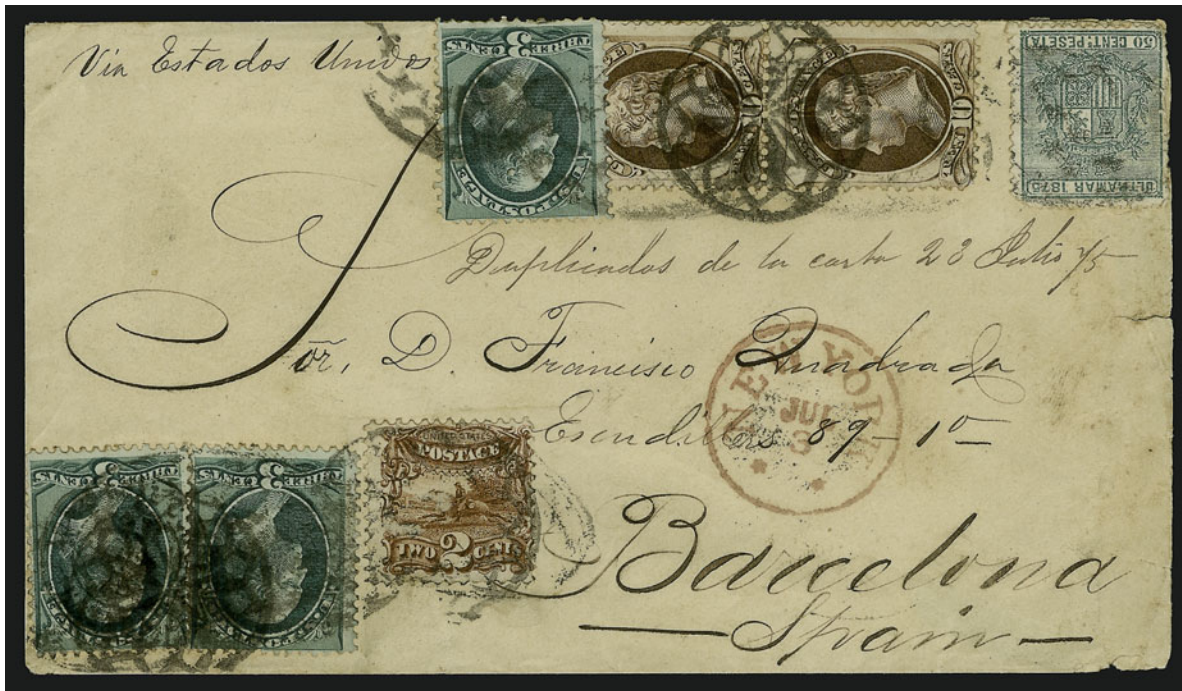 Via Estados Unidos
50 CENT. PESETA
ULTRAMAR 1875
Duplicados de la carta 28 Julio 75
Sōr, D. Francisco Quadrada
Escudillers 89 - 1º
NEW YORK
JUL
UNITED STATES
POSTAGE
TWO 2 CENTS
3
3
3
10
10
Barcelona
Spain